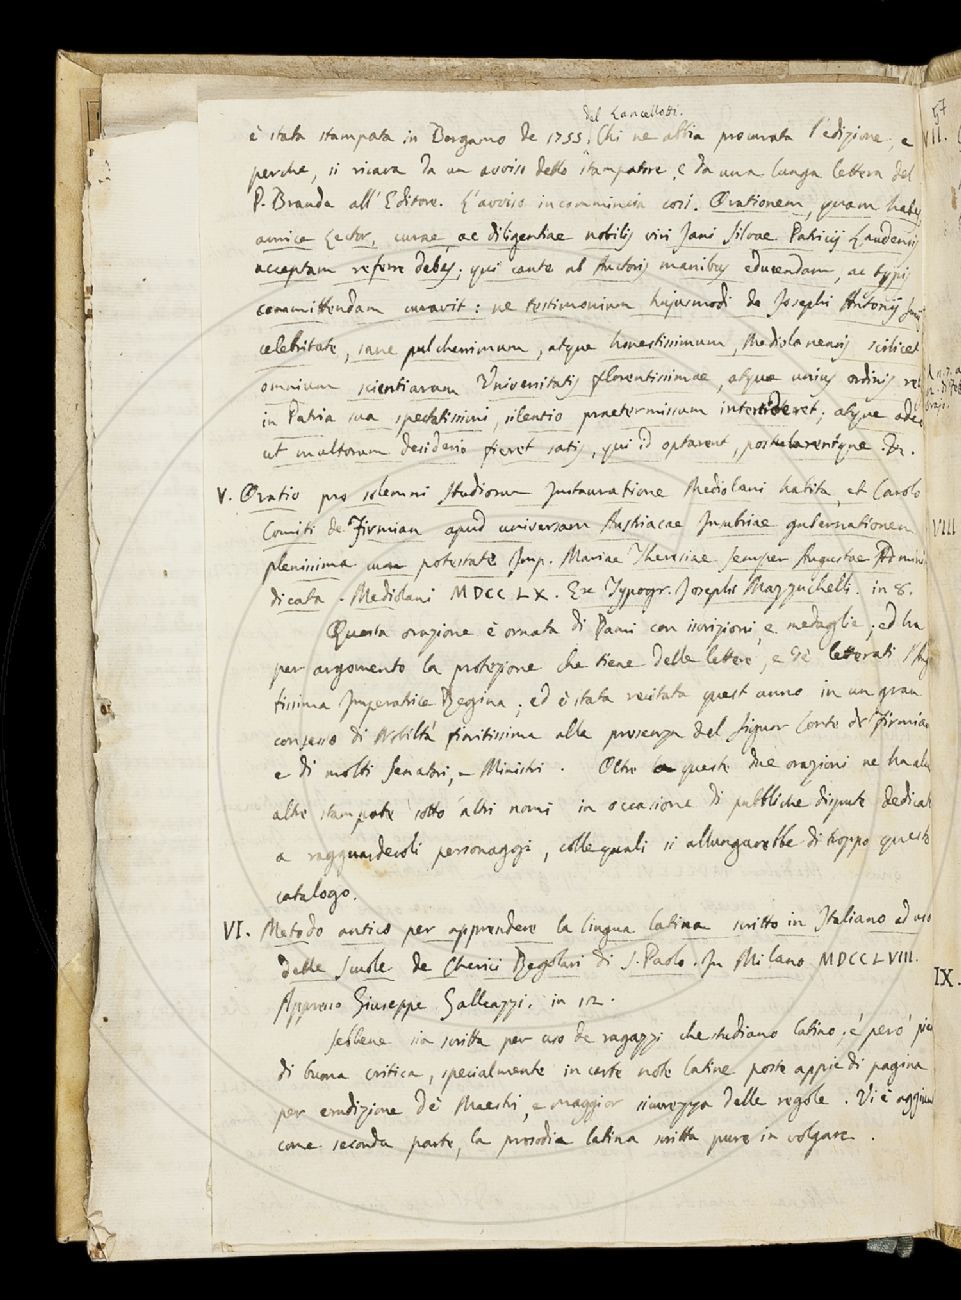 del Lancellotti.
è stata stampata in Bergamo de 1755. Chi ne abbia procurata l'edizione, e
perche, si ricava da un avviso dello stampatore, e da una lunga lettera del
P. Branda all'Editore. L'avviso incommincia così. Orationem, quam habes,
amice Lector, curae, ac diligentiae nobilis viri Jani Silvae Patricij Laudensis
acceptam referre debes; qui caute ab Auctoris manibus educendam, ac typis
committendam curavit: ne testimonium hujusmodi de Josephi Antonij
celebritate, sane pulcherrimum, atque honestissimum, Mediolanensis scilicet
omnium scientiarum Universitatis florentissimae, atque unius ordinis
in Patria sua spectatissimi, silentio praetermissum intercideret; atque adeo
ut multorum desiderio fieret satis, qui id optarent, postularentque. &c.
V. Oratio pro solemni Studiorum Instauratione Mediolani habita, et Carolo
Comiti de Firmian apud universam Austriacae Insubriae gubernationem
plenissima cum potestate Imp. Mariae Theresiae semper Augustae Admini
dicata. Mediolani MDCCLX. Ex Typogr. Josephi Mazzuchelli. in 8.
Questa orazione è ornata di Rami con iscrizioni, e medaglie; ed ha
per argomento la protezione che tiene delle lettere, e de' letterati l'Aug
tissima Imperatrice Regina; ed è stata recitata quest'anno in un gran
consesso di Nobiltà fioritissima alla presenza del Signor Conte de Firmian
e di molti Senatori, e Ministri. Oltre a queste due orazioni ne ha alc
altre stampate sotto altri nomi in occasione di pubbliche dispute dedicat
a ragguardevoli personaggi, colle quali si allungarebbe di troppo questo
catalogo.
VI. Metodo antico per apprendere la lingua latina scritto in Italiano ad uso
delle Scuole de Cherici Regolari di S. Paolo. In Milano MDCCLVIII.
Appresso Giuseppe Galleazzi. in 12.
Sebbene sia scritta per uso de ragazzi che studiano latino, è però pien
di buona critica, specialmente in certe note latine poste appiè di pagina
per erudizione de' Maestri, e maggior sicurezza delle regole. Vi è aggiun
come seconda parte, la prosodia latina scritta pure in volgare.
57
VII.
VIII
IX.